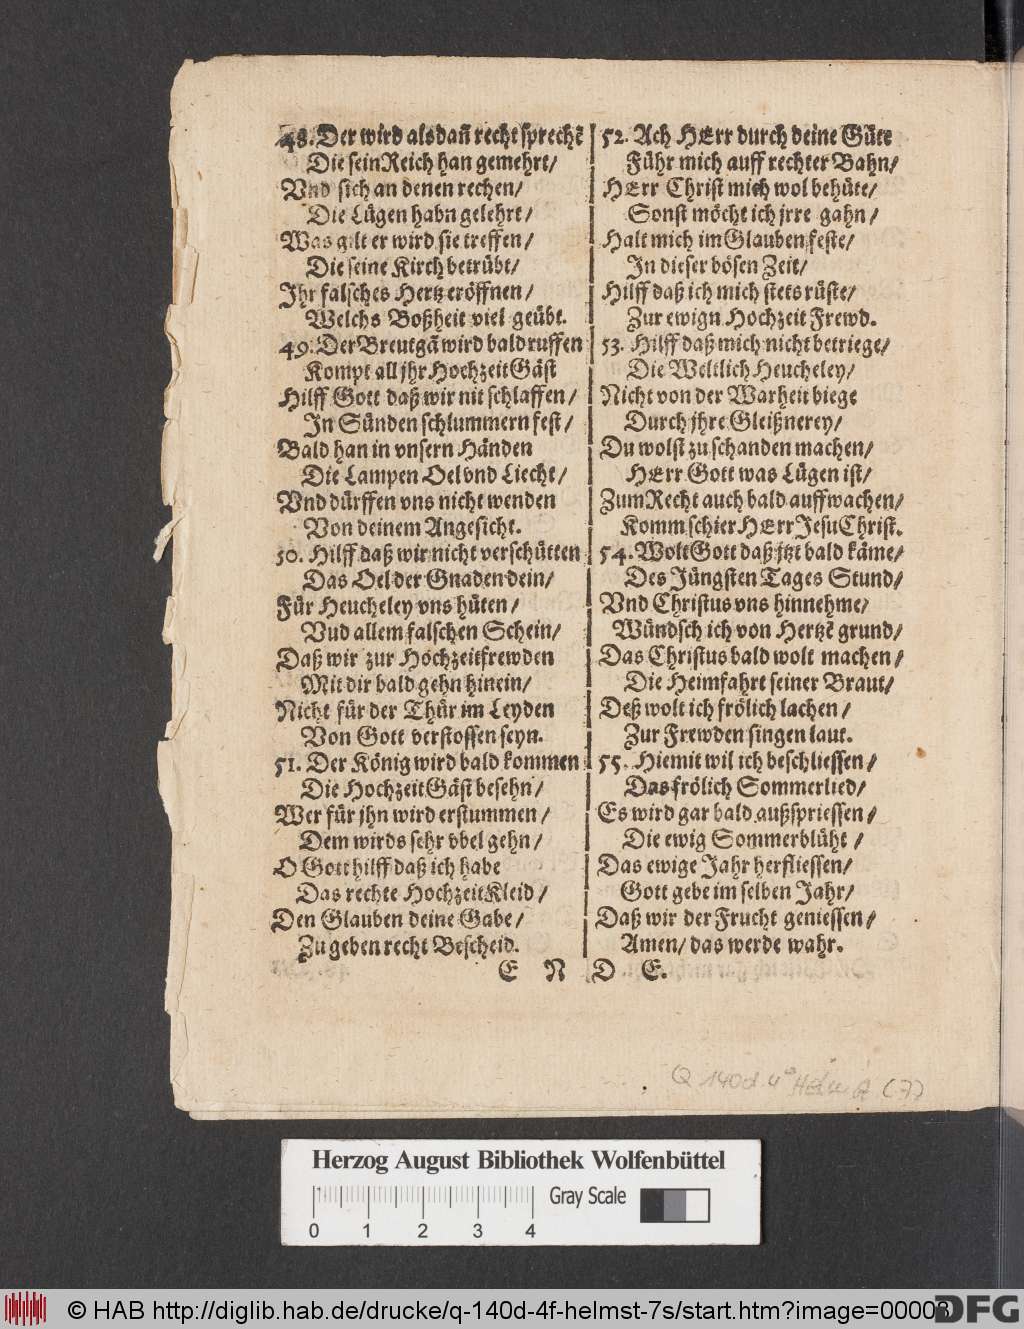 48. Der wird alsdañ recht sprechẽ
Die sein Reich han gemehrt/
Vnd sich an denen rechen/
Die Lügen habn gelehrt/
Was gilt er wird sie treffen/
Die seine Kirch betrübt/
Ihr falsches Hertz eröffnen/
Welchs Boßheit viel geübt.
49. Der Breutgã wird bald ruffen
Kompt all jhr Hochzeit Gäst
Hilff Gott daß wir nit schlaffen/
In Sünden schlummern fest/
Bald han in vnsern Händen
Die Lampen Oel vnd Liecht/
Vnd dürffen vns nicht wenden
Von deinem Angesicht.
50. Hilff daß wir nicht verschütten
Das Oel der Gnaden dein/
Für Heucheley vns hüten/
Vud allem falschen Schein/
Daß wir zur Hochzeitfrewden
Mit dir bald gehn hinein/
Nicht für der Thür im Leyden
Von Gott verstossen seyn.
51. Der König wird bald kommen
Die Hochzeit Gäst besehn/
Wer für jhn wird erstummen/
Dem wirds sehr vbel gehn/
O Gott hilff daß ich habe
Das rechte Hochzeit Kleid/
Den Glauben deine Gabe/
Zu geben recht Bescheid.
52. Ach HErr durch deine Güte
Führ mich auff rechter Bahn/
HErr Christ mich wol behüte/
Sonst möcht ich jrre gahn/
Halt mich im Glauben feste/
In dieser bösen Zeit/
Hilff daß ich mich stets rüste/
Zur ewign Hochzeit Frewd.
53. Hilff daß mich nicht betriege/
Die Weltlich Heucheley/
Nicht von der Warheit biege
Durch jhre Gleißnerey/
Du wolst zu schanden machen/
HErr Gott was Lügen ist/
Zum Recht auch bald auffwachen/
Komm schier HErr Jesu Christ.
54. Wolt Gott daß jtzt bald käme/
Des Jüngsten Tages Stund/
Vnd Christus vns hinnehme/
Wündsch ich von Hertzẽ grund/
Das Christus bald wolt machen/
Die Heimfahrt seiner Braut/
Deß wolt ich frölich lachen/
Zur Frewden singen laut.
55. Hiemit wil ich beschliessen/
Das frölich Sommerlied/
Es wird gar bald außspriessen/
Die ewig Sommerblüht/
Das ewige Jahr herfliessen/
Gott gebe im selben Jahr/
Daß wir der Frucht geniessen/
Amen/ das werde wahr.
E N D E.
Q 140d. 4° Helmst (7)
Herzog August Bibliothek Wolfenbüttel
0 1 2 3 4
Gray Scale
© HAB http://diglib.hab.de/drucke/q-140d-4f-helmst-7s/start.htm?image=00008
DFG